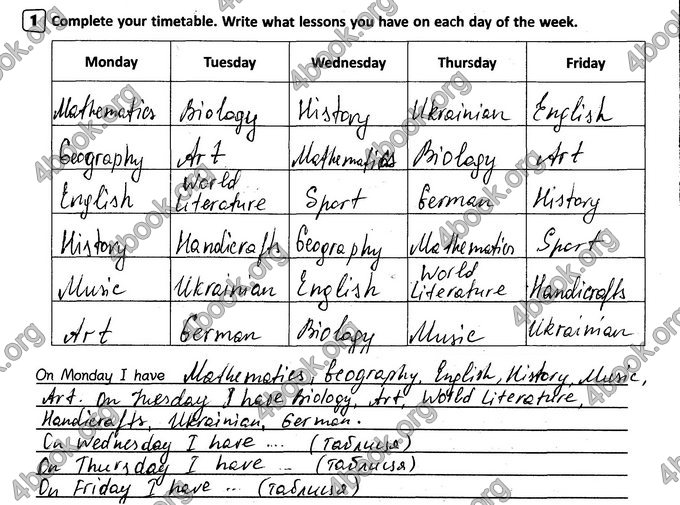 1 Complete your timetable. Write what lessons you have on each day of the week.
Monday Tuesday Wednesday Thursday Friday
Mathematics Biology History Ukrainian English
Geography Art Mathematics Biology Art
English World Literature Sport German History
History Handicrafts Geography Mathematics Sport
Music Ukrainian English World Literature Handicrafts
Art German Biology Music Ukrainian
On Monday I have Mathematics, Geography, English, History, Music,
Art. On Tuesday I have Biology, Art, World Literature,
Handicrafts, Ukrainian, German.
On Wednesday I have ... (таблиця)
On Thursday I have ... (таблиця)
On Friday I have ... (таблиця)
4book.org